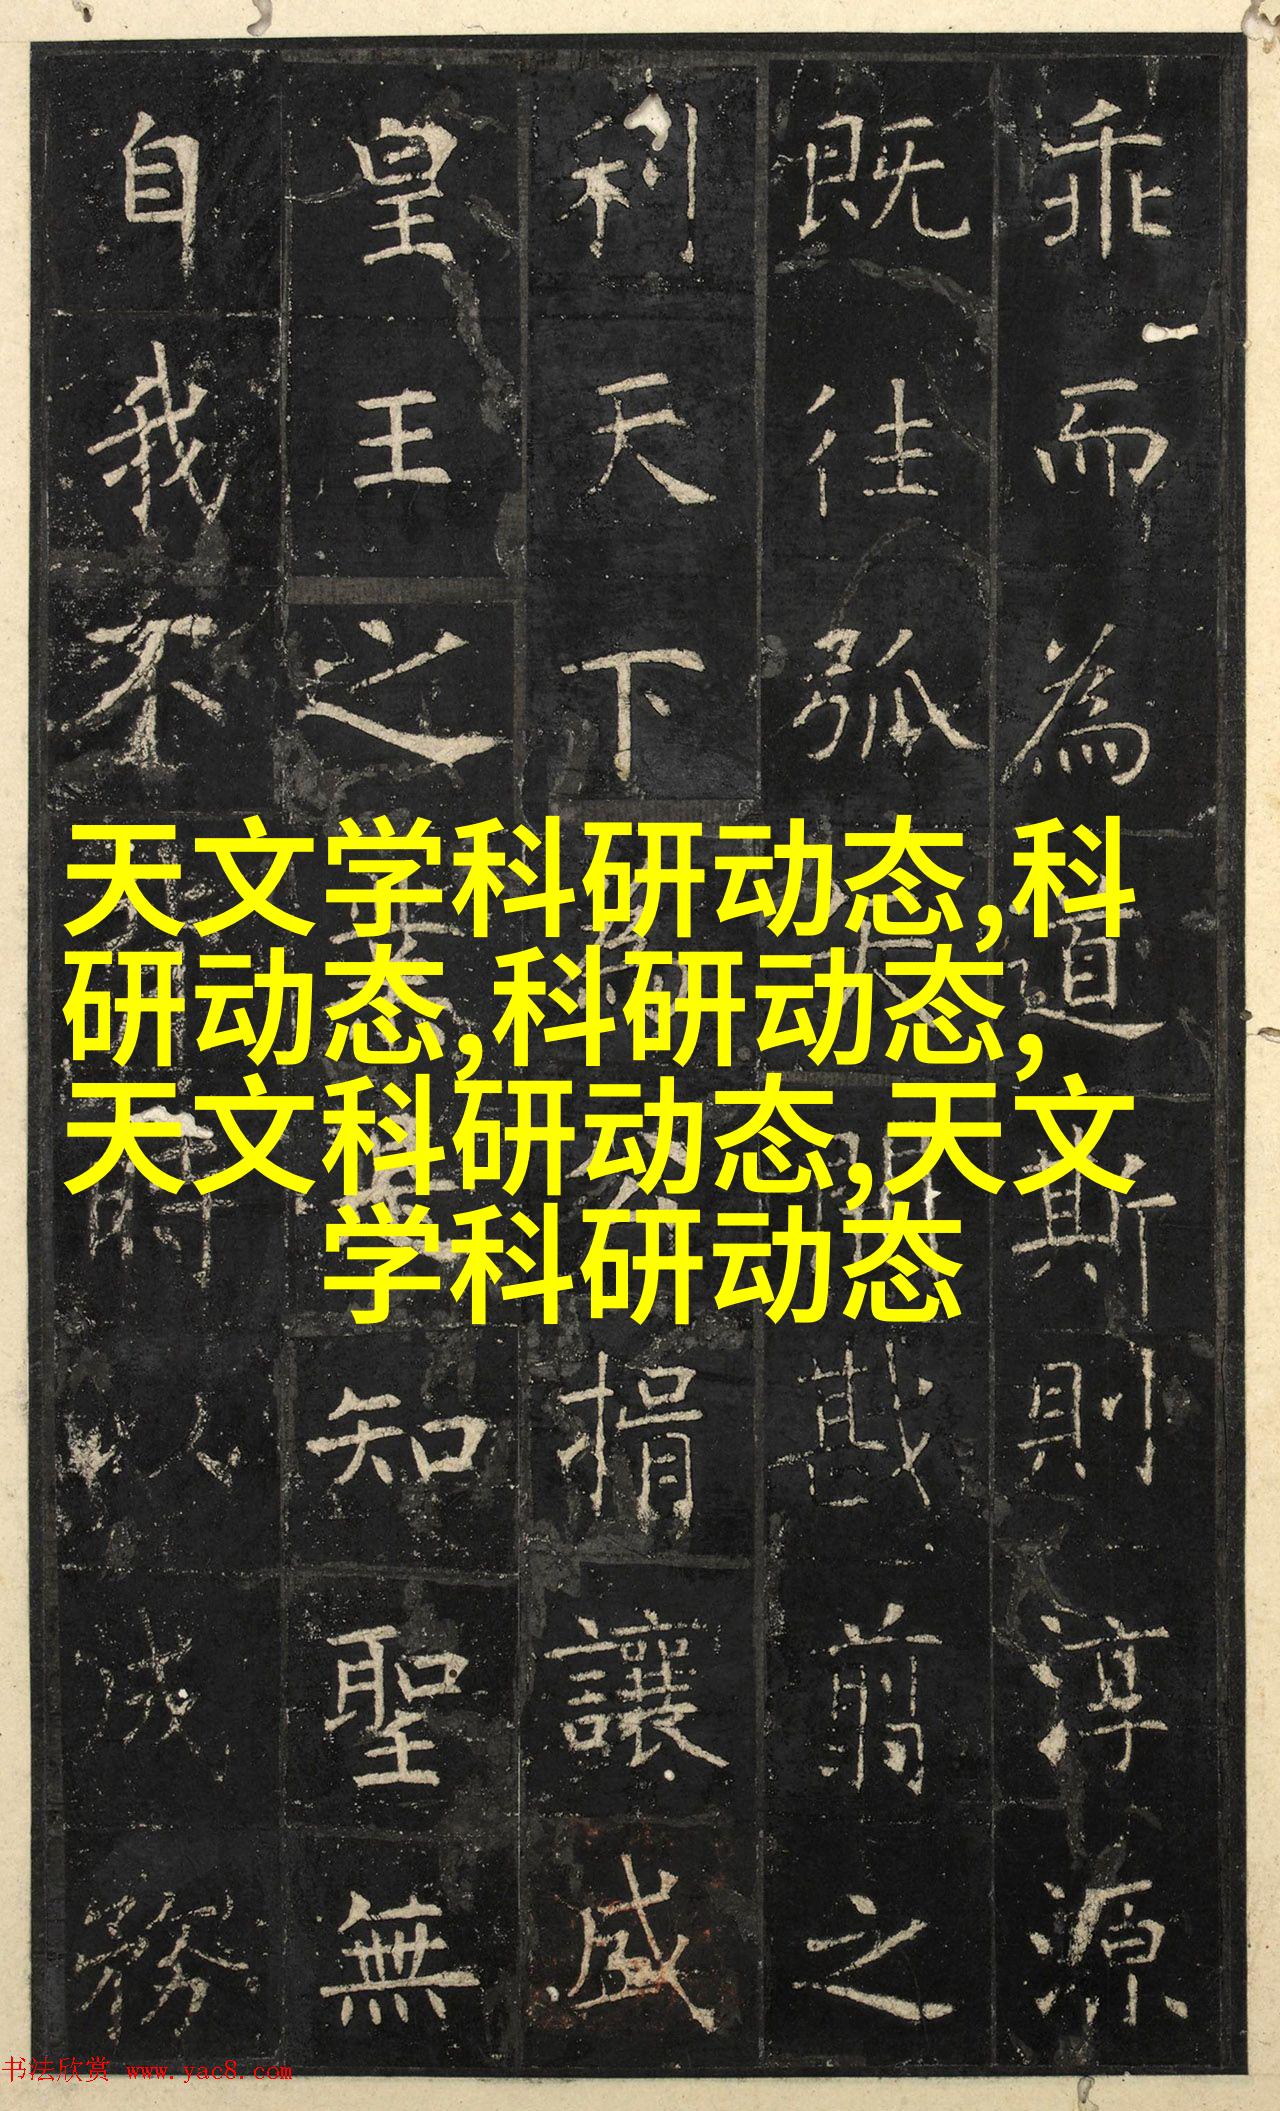 天文学科研动态,科
研动态,科研动态,
天文科研动态,天文
学科研动态
乖而為道斯則淳源
既往弧戡翦之
利天下為捐讓咸
皇王之知聖無
自我不時務
书法欣赏 www.yac8.com